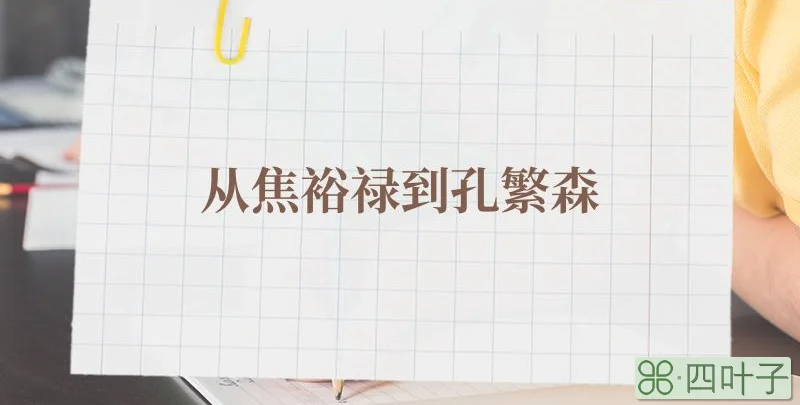 从焦裕禄到孔繁森
四叶子